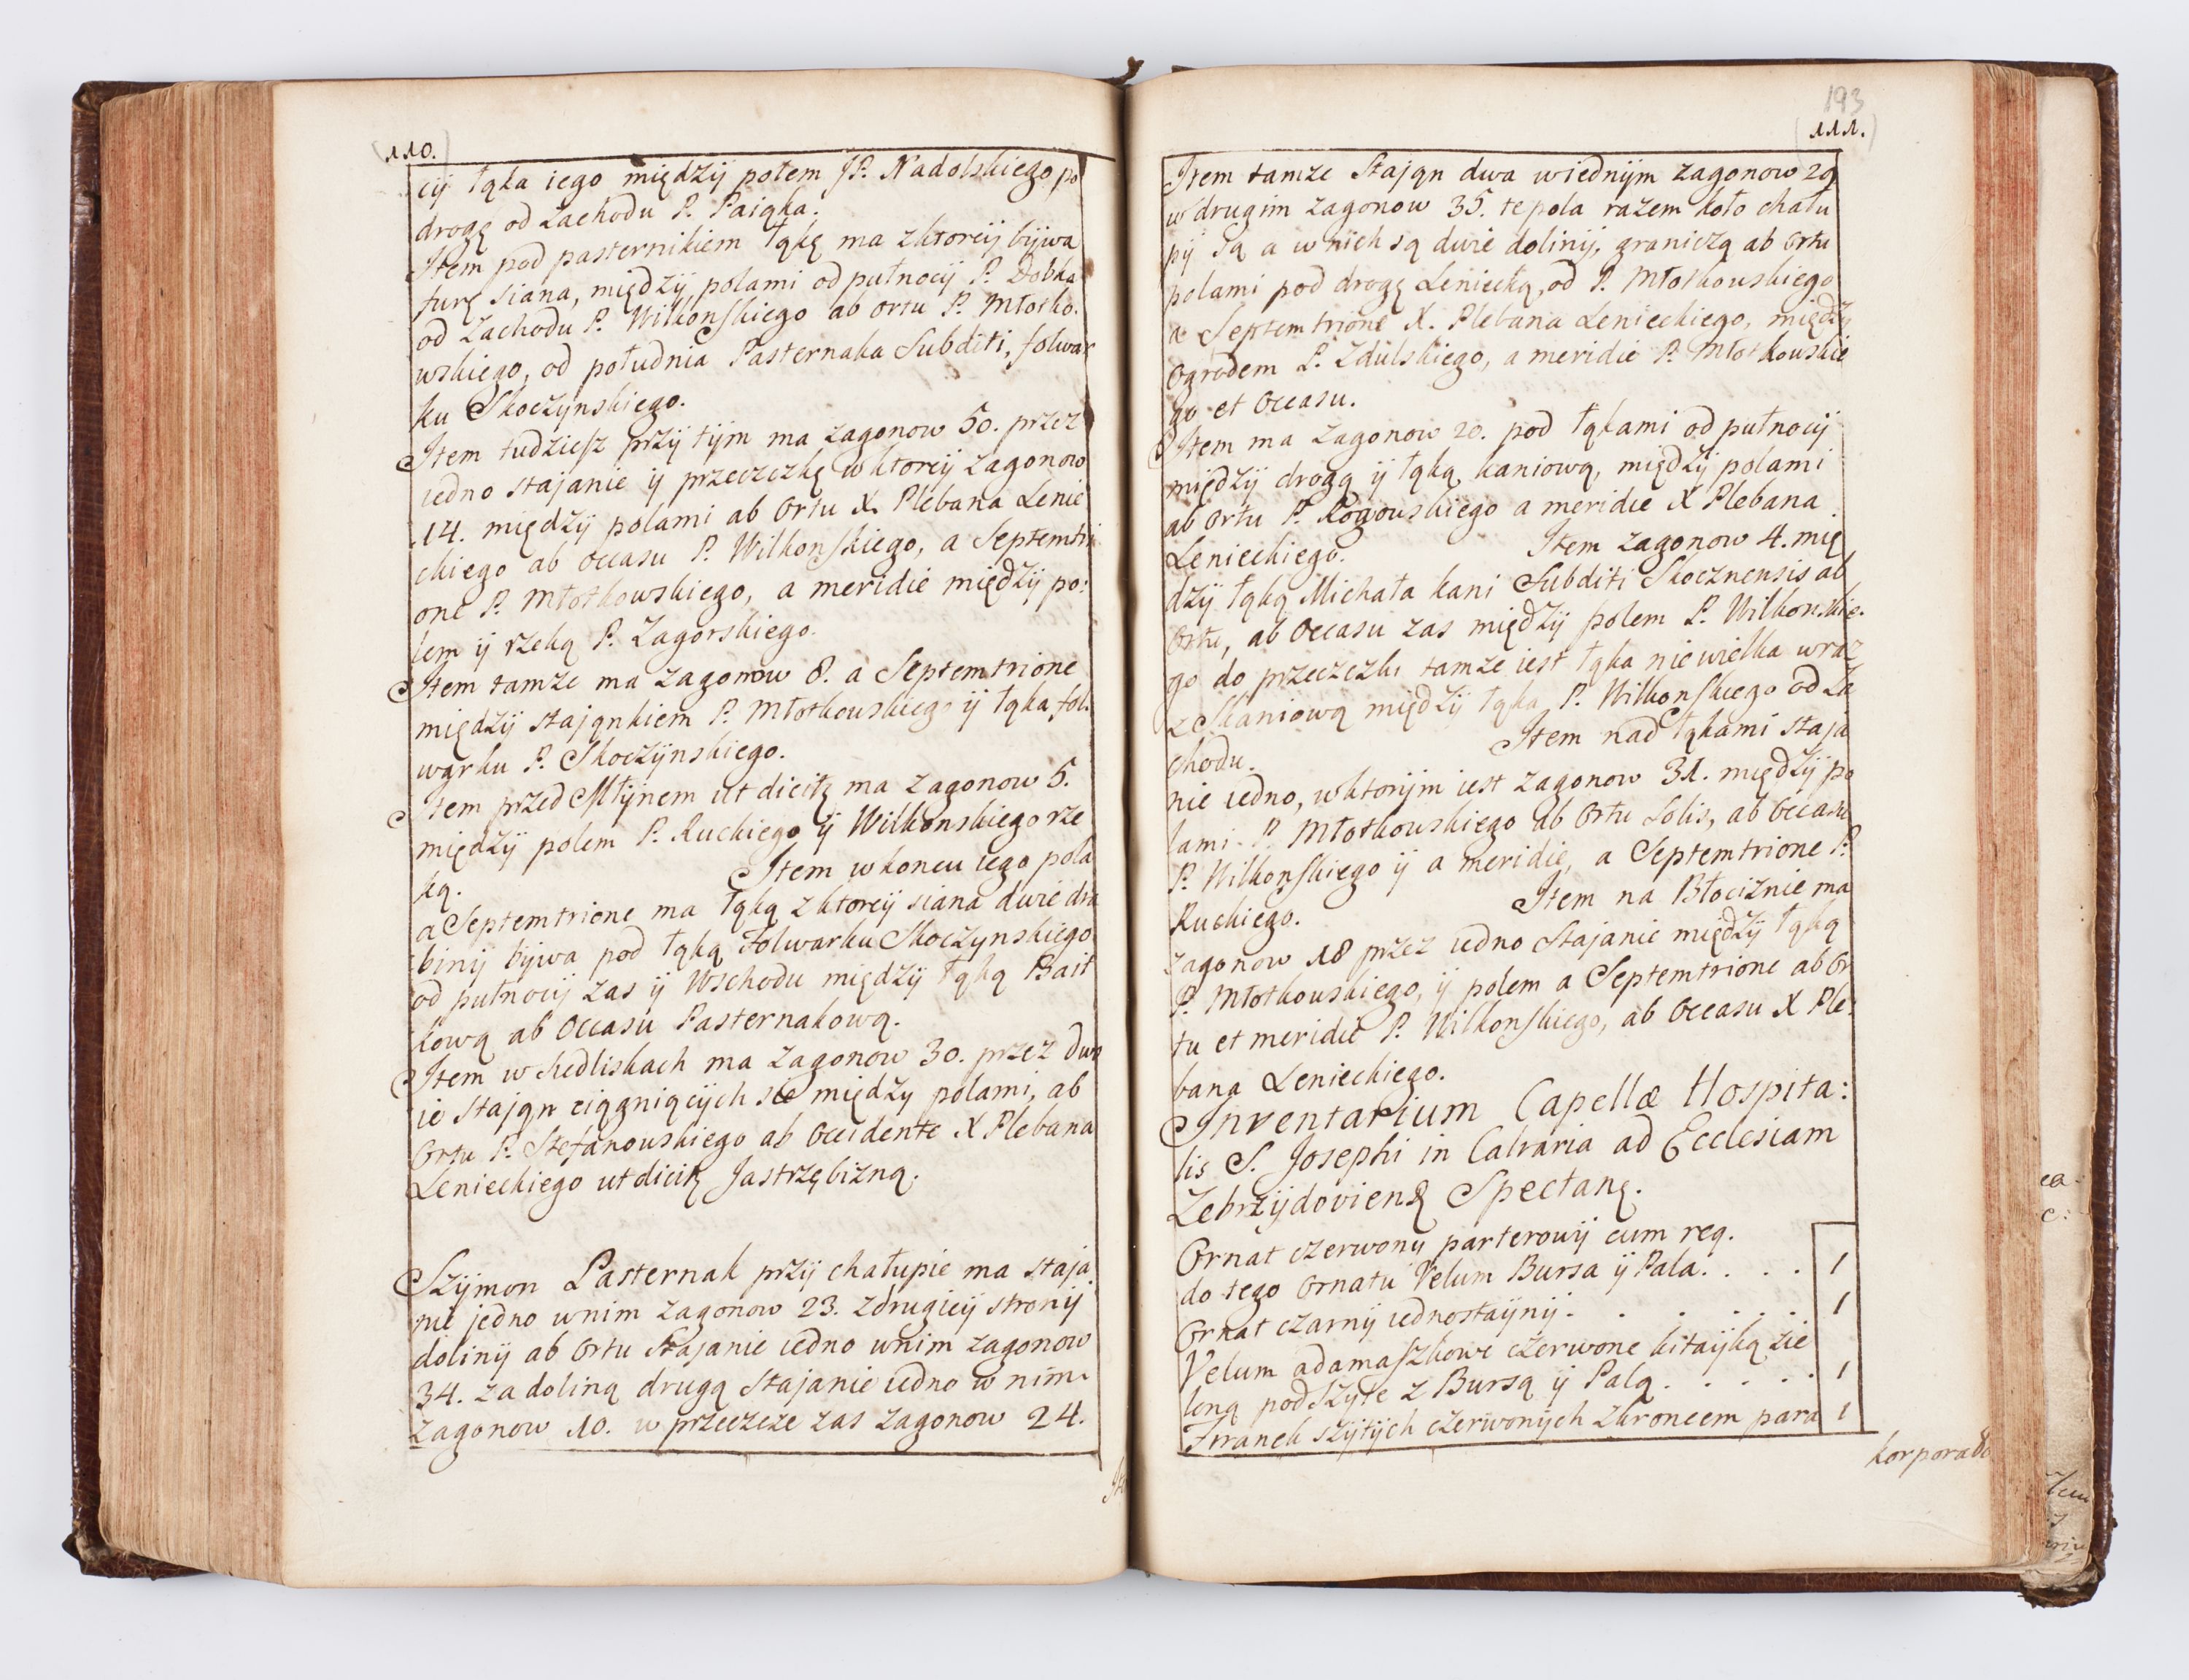 110.
cij łąka iego między polem JP. Nadolskiego po
drogę od Zachodu P. Paiąka.
Item pod pasternikiem łąkę ma z ktoreij bijwa
furę siana, międzij polami od pułnocij P. Dobka
od Zachodu P. Wilkonskiego ab ortu P. Młotko.
wskiego, od południa Pasternaka Subditi, folwar
ku Skoczynskiego.
Item tudziesz przij tijm ma zagonow 50. przez
iedno stajanie ij przeczezkę w ktoreij zagonow
14. międzij polami ab Ortu X. Plebana Lenie
ckiego ab Occasu P. Wilkonskiego, a Septemtri
one P. Młotkowskiego, a meridie międzij po:
lem ij rzeką P. Zagorskiego.
Item tamze ma zagonow 8. a Septemtrione
międzij stająnkiem P. Młotkowskiego ij łąka fol.
wąrku P. Skoczijnskiego.
Item przed Młijnem ut dicitr ma zagonow 5.
międzij polem P. Ruckiego ij Wilkonskiego rze
ką. Item w koncu iego pola
a Septemtrione ma łąką z ktoreij siana dwie dra
binij bijwa pod łąką Folwarku Skoczynskiego
od pułnocij zas ij Wschodu międzij łąką Bait
kową ab Occasu Pasternakową.
Item w Siedliskach ma zagonow 30. przez dwo
ie stająn ciągniącijch sie między polami, ab
Ortu P. Stefanowskiego ab Occidente X Plebana
Lenieckiego ut dicitr Jastrzębizną.
Szijmon Pasternak przij chałupie ma staja
nie jedno w nim zagonow 23. z drugieij stronij
dolinij ab Ortu Stajanie iedno w nim zagonow
34. za doliną drugą stajanie iedno w nim
zagonow 10. w przeczeze zas zagonow 24.
193
111.
Item tamze Stająn dwa w iednijm zagonow 29
w drugim zagonow 35. te pola razem koło chału
pij są a w nich są dwie dolinij, graniczą ab ortu
polami pod drogę Leniecką, od P. Młotkowskiego
a Septemtrione X. Plebana Lenieckiego, międzij
Ogrodem P. Zdulskiego, a meridie P. Młotkowskie
go et Occasu.
Item ma zagonow 20. pod łąkami od pułnocij
międzij drogą ij łąką kaniową, międzij polami
ab Ortu P. Rogowskiego a meridie X Plebana
Lenieckiego. Item zagonow 4. mię
dzij łąką Michała kani Subditi Skocznensis ab
Ortu, ab Occasu zas międzij polem P. Wilkonskie.
go do przeczezki tamze iest łąka niewielka wraz
z Skaniową międzij łąką P. Wilkonskiego od Za
chodu. Item nad łąkami Staja
nie iedno, w ktorijm iest zagonow 31. międzij po
lami P. Młotkowskiego ab Ortu Solis, ab Occasu
P. Wilkonskiego ij a meridie, a Septemtrione P.
Ruckiego. Item na Błociznie ma
zagonow 18 przez iedno Stajanie międzij łąką
P. Młotkowskiego, ij polem a Septemtrione ab Or
tu et meridie P. Wilkonskiego, ab Occasu X Ple:
bana Lenieckiego.
Inventarium Capellæ Hospita:
lis S. Josephi in Calvaria ad Ecclesiam
Zebrzijdovienę Spectanę.
Ornat czerwonij parterowij cum req.
do tego Ornatu Velum Bursa ij Pala. . . . 1
Ornat czarnij iednostaijnij. . . . . . 1
Velum adamaszkowe czerwone kitaijką zie
loną podszyte z Bursą ij Palą. . . . . 1
Firanek szijtijch czerwonijch z kroncem para 1
korporało